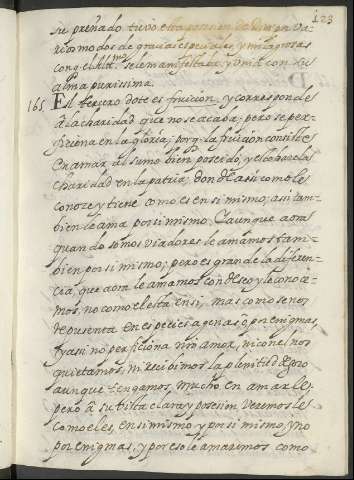 123
su preñado tuvo esta posesion de Dios en va=
rios modos de gracias especiales, y milagrosas
con q. el Alt.mo se le manifestava, y unia con su
alma purissima.
165 El tercero dote es fruicion, y corresponde
â la charidad que no se acaba, pero se per=
ficiona en la gloria; porq. la fruicion consiste
en amar al sumo bien poseido, y esto haze la
charidad en la patria, donde asi como le
conoze y tiene como es en si mismo, asi tan=
bien le ama por si mismo. I aunque aora
quando somos viadores le amamos tam=
bien por si mismo; pero es grande la diferen=
cia, que aora le amamos con deseo y le conoce=
mos, no como el esta en si, mas como se nos
representa en especies agenas ô por enigmas,
y assi no perficiona nro amor, ni con el nos
quietamos, ni recibimos la plenitud de gozo
aunque tengamos mucho en amarle.
pero â su vista clara y posesion veremosle
como el es, en si mismo y por si mismo, y no
por enigmas, y por eso le amaremos como